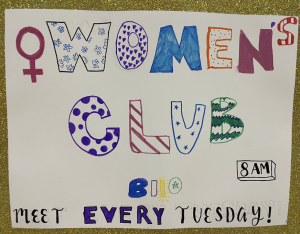 WOMEN'S
CLUB
8 AM
MEET EVERY TUESDAY!